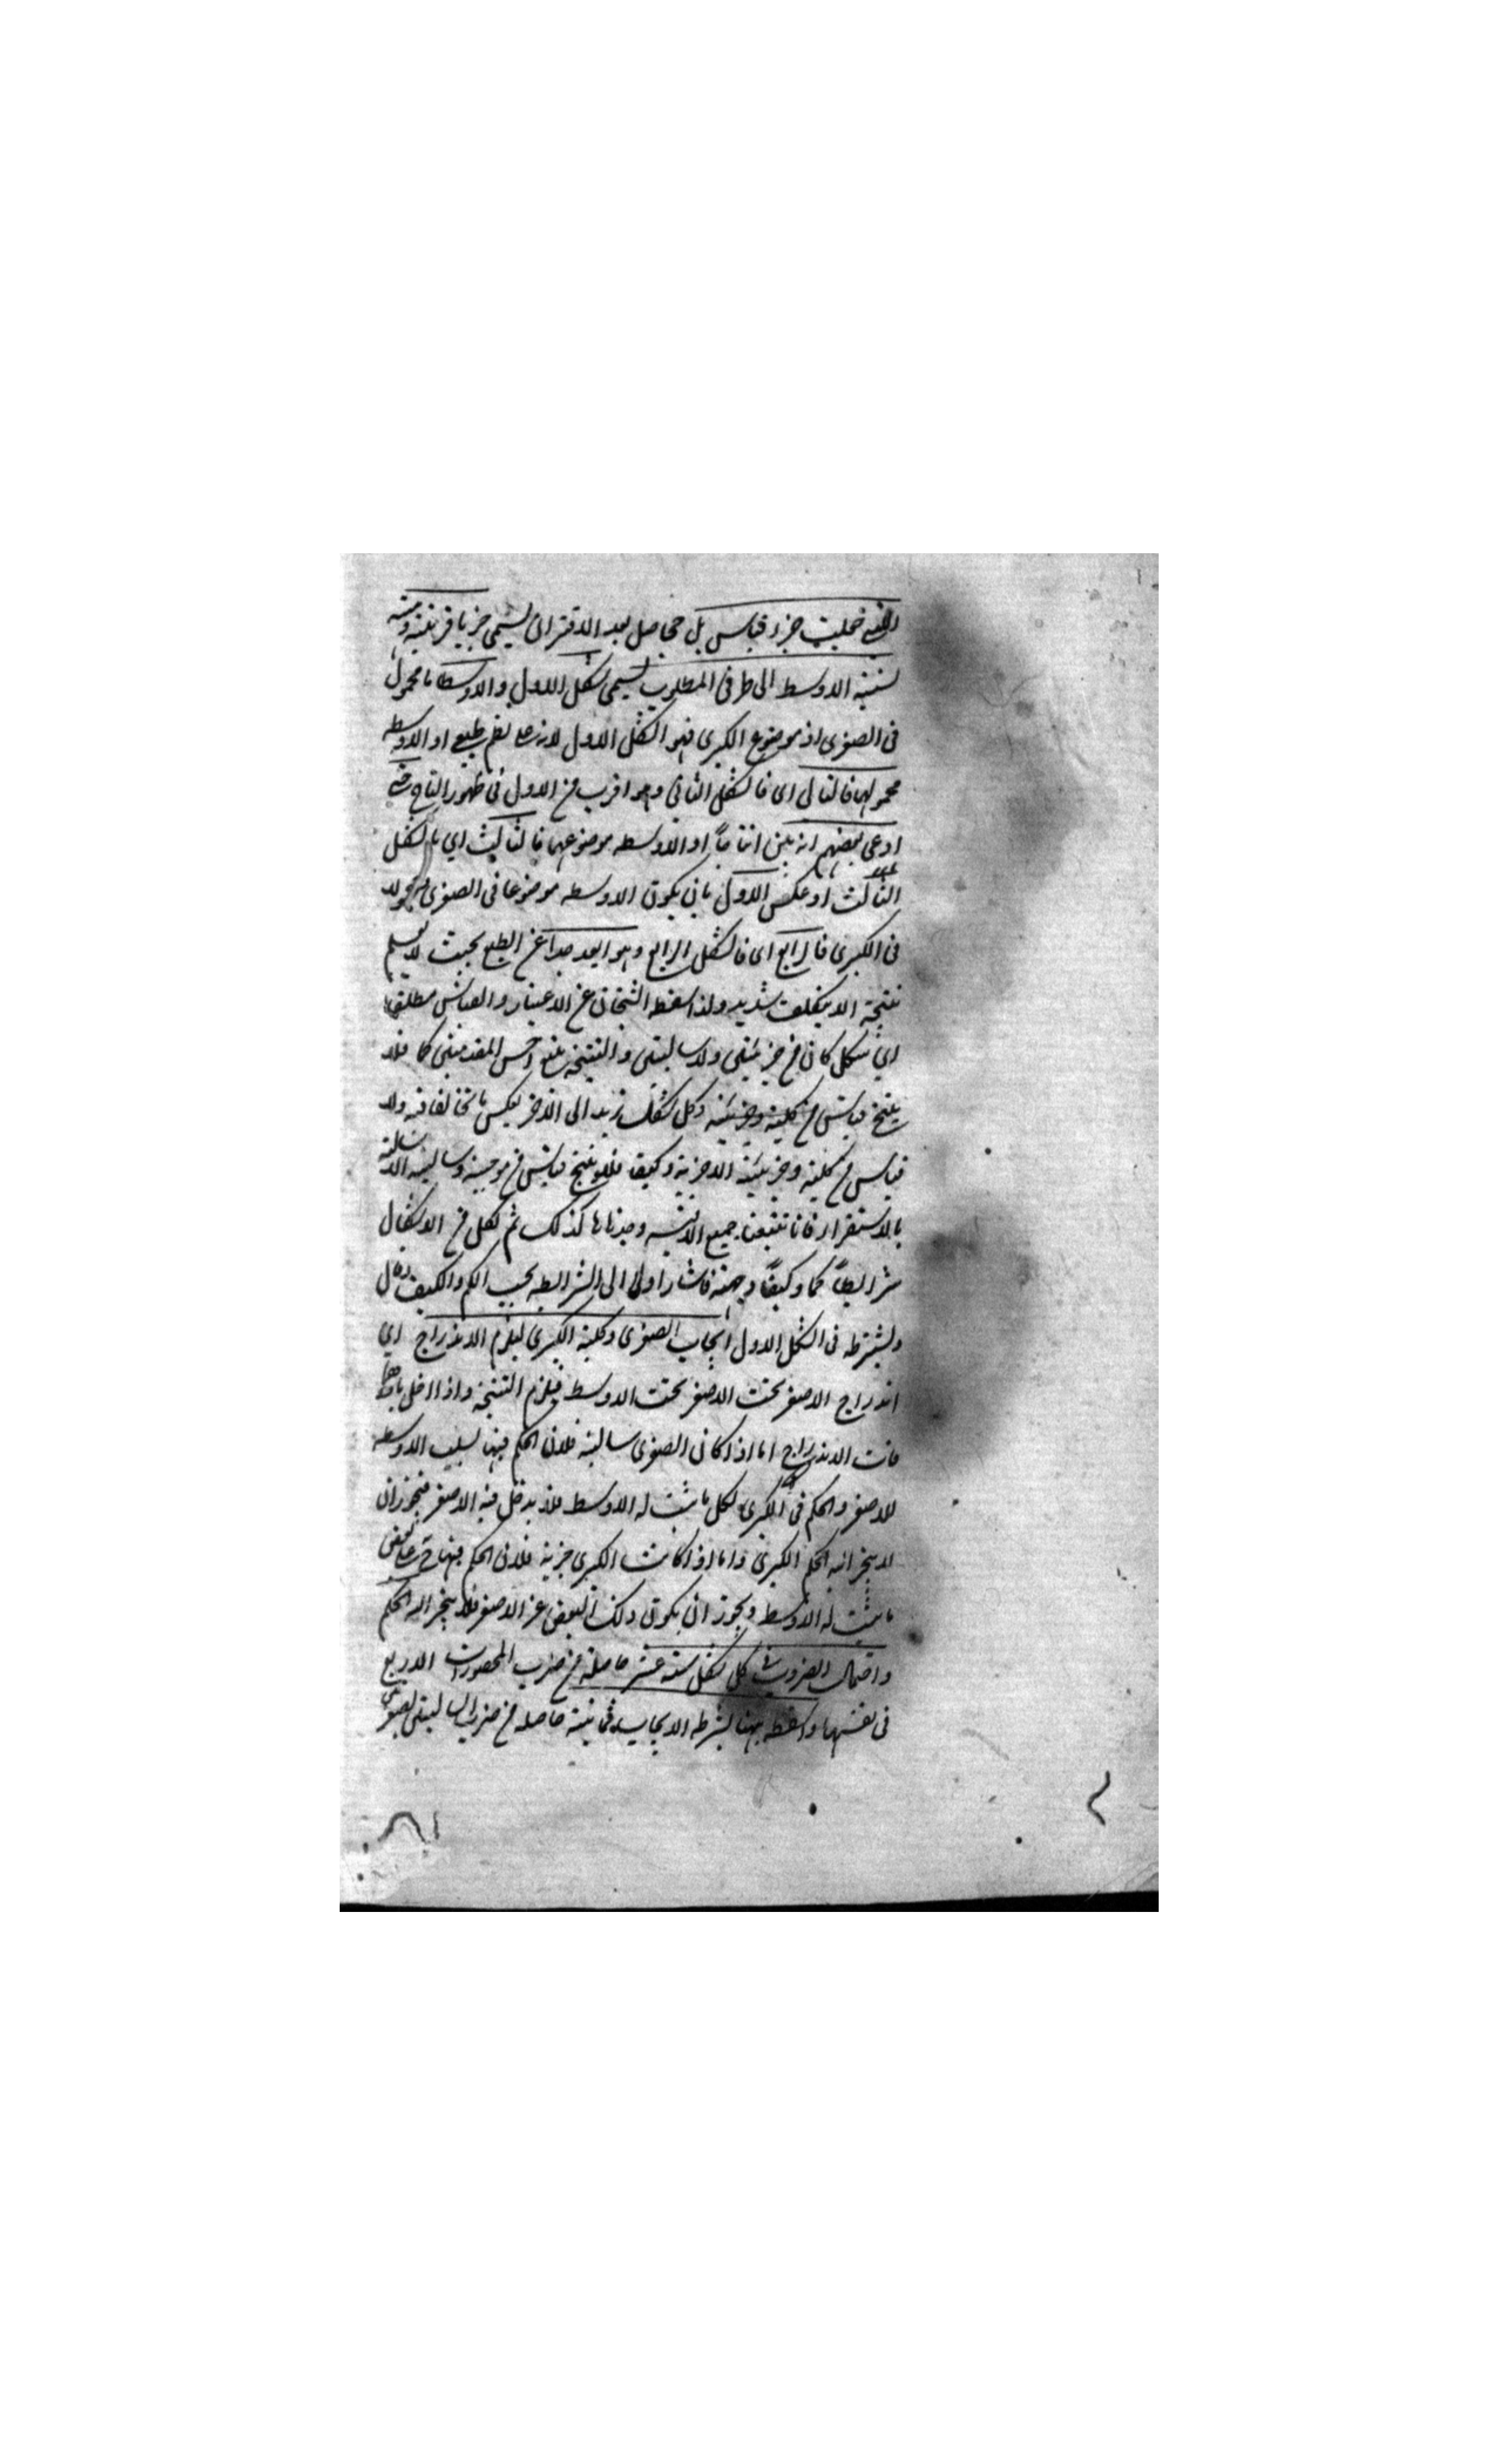 القضية جعلت جزء قياس بل حاصل بعد الاقتران يسمى ضربا وقرينة وهيئة
نسبة الاوسط الى طرفى المطلوب يسمى شكل الاول والاوسط اما محمول
فى الصغرى او موضوع الكبرى فهو الشكل الاول لانه على نظم طبيعى او الاوسط
محمولهما فالثانى اى فالشكل الثانى وهو اقرب من الاول فى ظهور النتاج حتى
ادعى بعضهم انه بين انتاجاً او الاوسط موضوعهما فالثالث اي فالشكل
الثالث او عكس الاول بان يكون الاوسط موضوعا فى الصغرى محمولا
فى الكبرى فالرابع اى فالشكل الرابع وهو ابعد جدا عن الطبع بحيث لا يعلم
نتيجة الا بتكلف شديد ولذا اسقطه الشيخان عن الاعتبار والقياس مطلقا
اي شكل كان من جزئيتين ولا سالبتين والنتيجة يتبع اخس المقدمتين كما فلا
ينتج قياس من كلية وجزئية وكل شكل يرتد الى الاخر بعكس ما تخالفا فيه ولا
قياس من كلية وجزئية الا جزئية وكيف فلا ينتج قياس من موجبة وسالبة الا سالبة
بالاستقراء فانا تتبعنا جميع الاقيسة وجدناها كذلك ثم لكل من الاشكال
شرايطاً كما وكيفاً وجهة فاشار اولا الى الشرايط بحسب الكم والكيف وقال
ولشترط فى الشكل الاول ايجاب الصغرى وكلية الكبرى ليلزم الاندراج اي
اندراج الاصغر تحت الاصغر تحت الاوسط فيلزم النتيجة واذا اخل باحدهما
فات الاندراج اما اذا كان الصغرى سالبة فلان الحكم فيها بسلب الاوسط
للاصغر والحكم فى الكبرى لكل ما ثبت له الاوسط فلا يدخل فيه الاصغر فيجوز ان
لا ينجر اليه الحكم الكبرى واما اذا كانت الكبرى جزئية فلان الحكم فيها على بعض
ما ثبت له الاوسط ويجوز ان يكون ذلك البعض غير الاصغر فلا ينجر اليه الحكم
واحتمال الضروب فى كل شكل ستة عشر حاصلة من ضرب المحصورات الاربع
فى نفسها واسقط ههنا بشرط الايجاب ثمانية حاصلة من ضرب السالبتين الصغرى